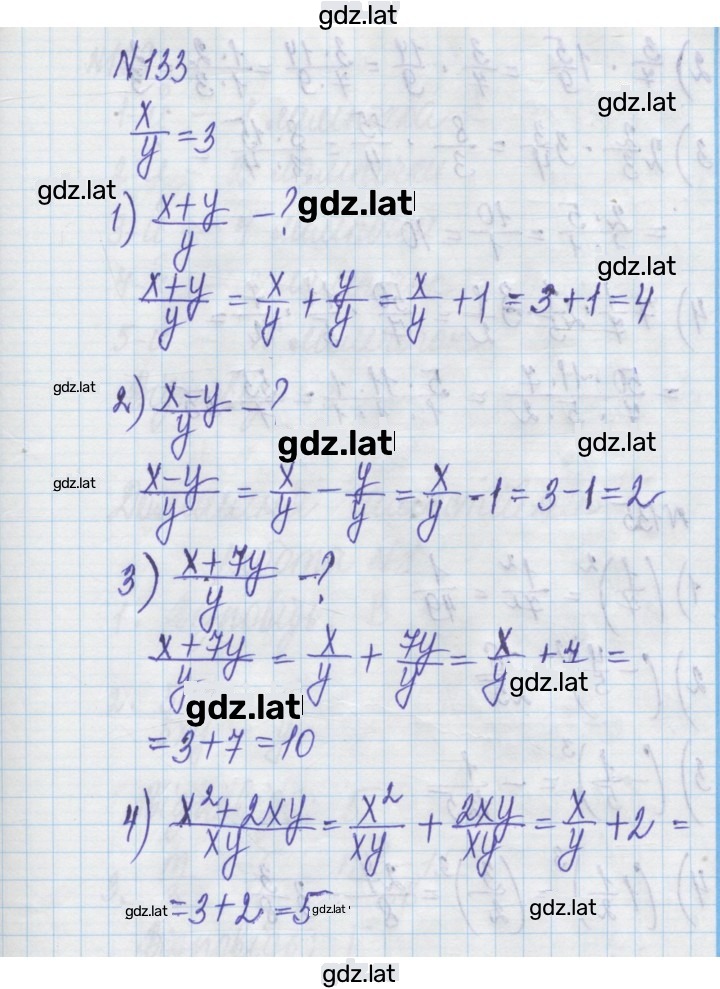 gdz.lat
№133
x/y = 3
gdz.lat
gdz.lat
1) (x+y)/y - ? gdz.lat
gdz.lat
(x+y)/y = x/y + y/y = x/y + 1 = 3+1 = 4
gdz.lat
2) (x-y)/y - ?
gdz.lat gdz.lat
gdz.lat
(x-y)/y = x/y - y/y = x/y - 1 = 3-1 = 2
3) (x+7y)/y - ?
(x+7y)/y = x/y + 7y/y = x/y + 7 =
gdz.lat
gdz.lat
= 3+7 = 10
4) (x²+2xy)/xy = x²/xy + 2xy/xy = x/y + 2 =
gdz.lat = 3+2 = 5 gdz.lat gdz.lat
gdz.lat